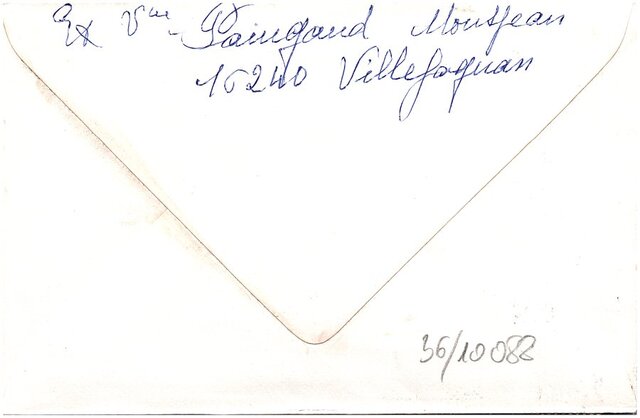 Ex Vve Paingaud Montjean
16240 Villefagnan
36/10088